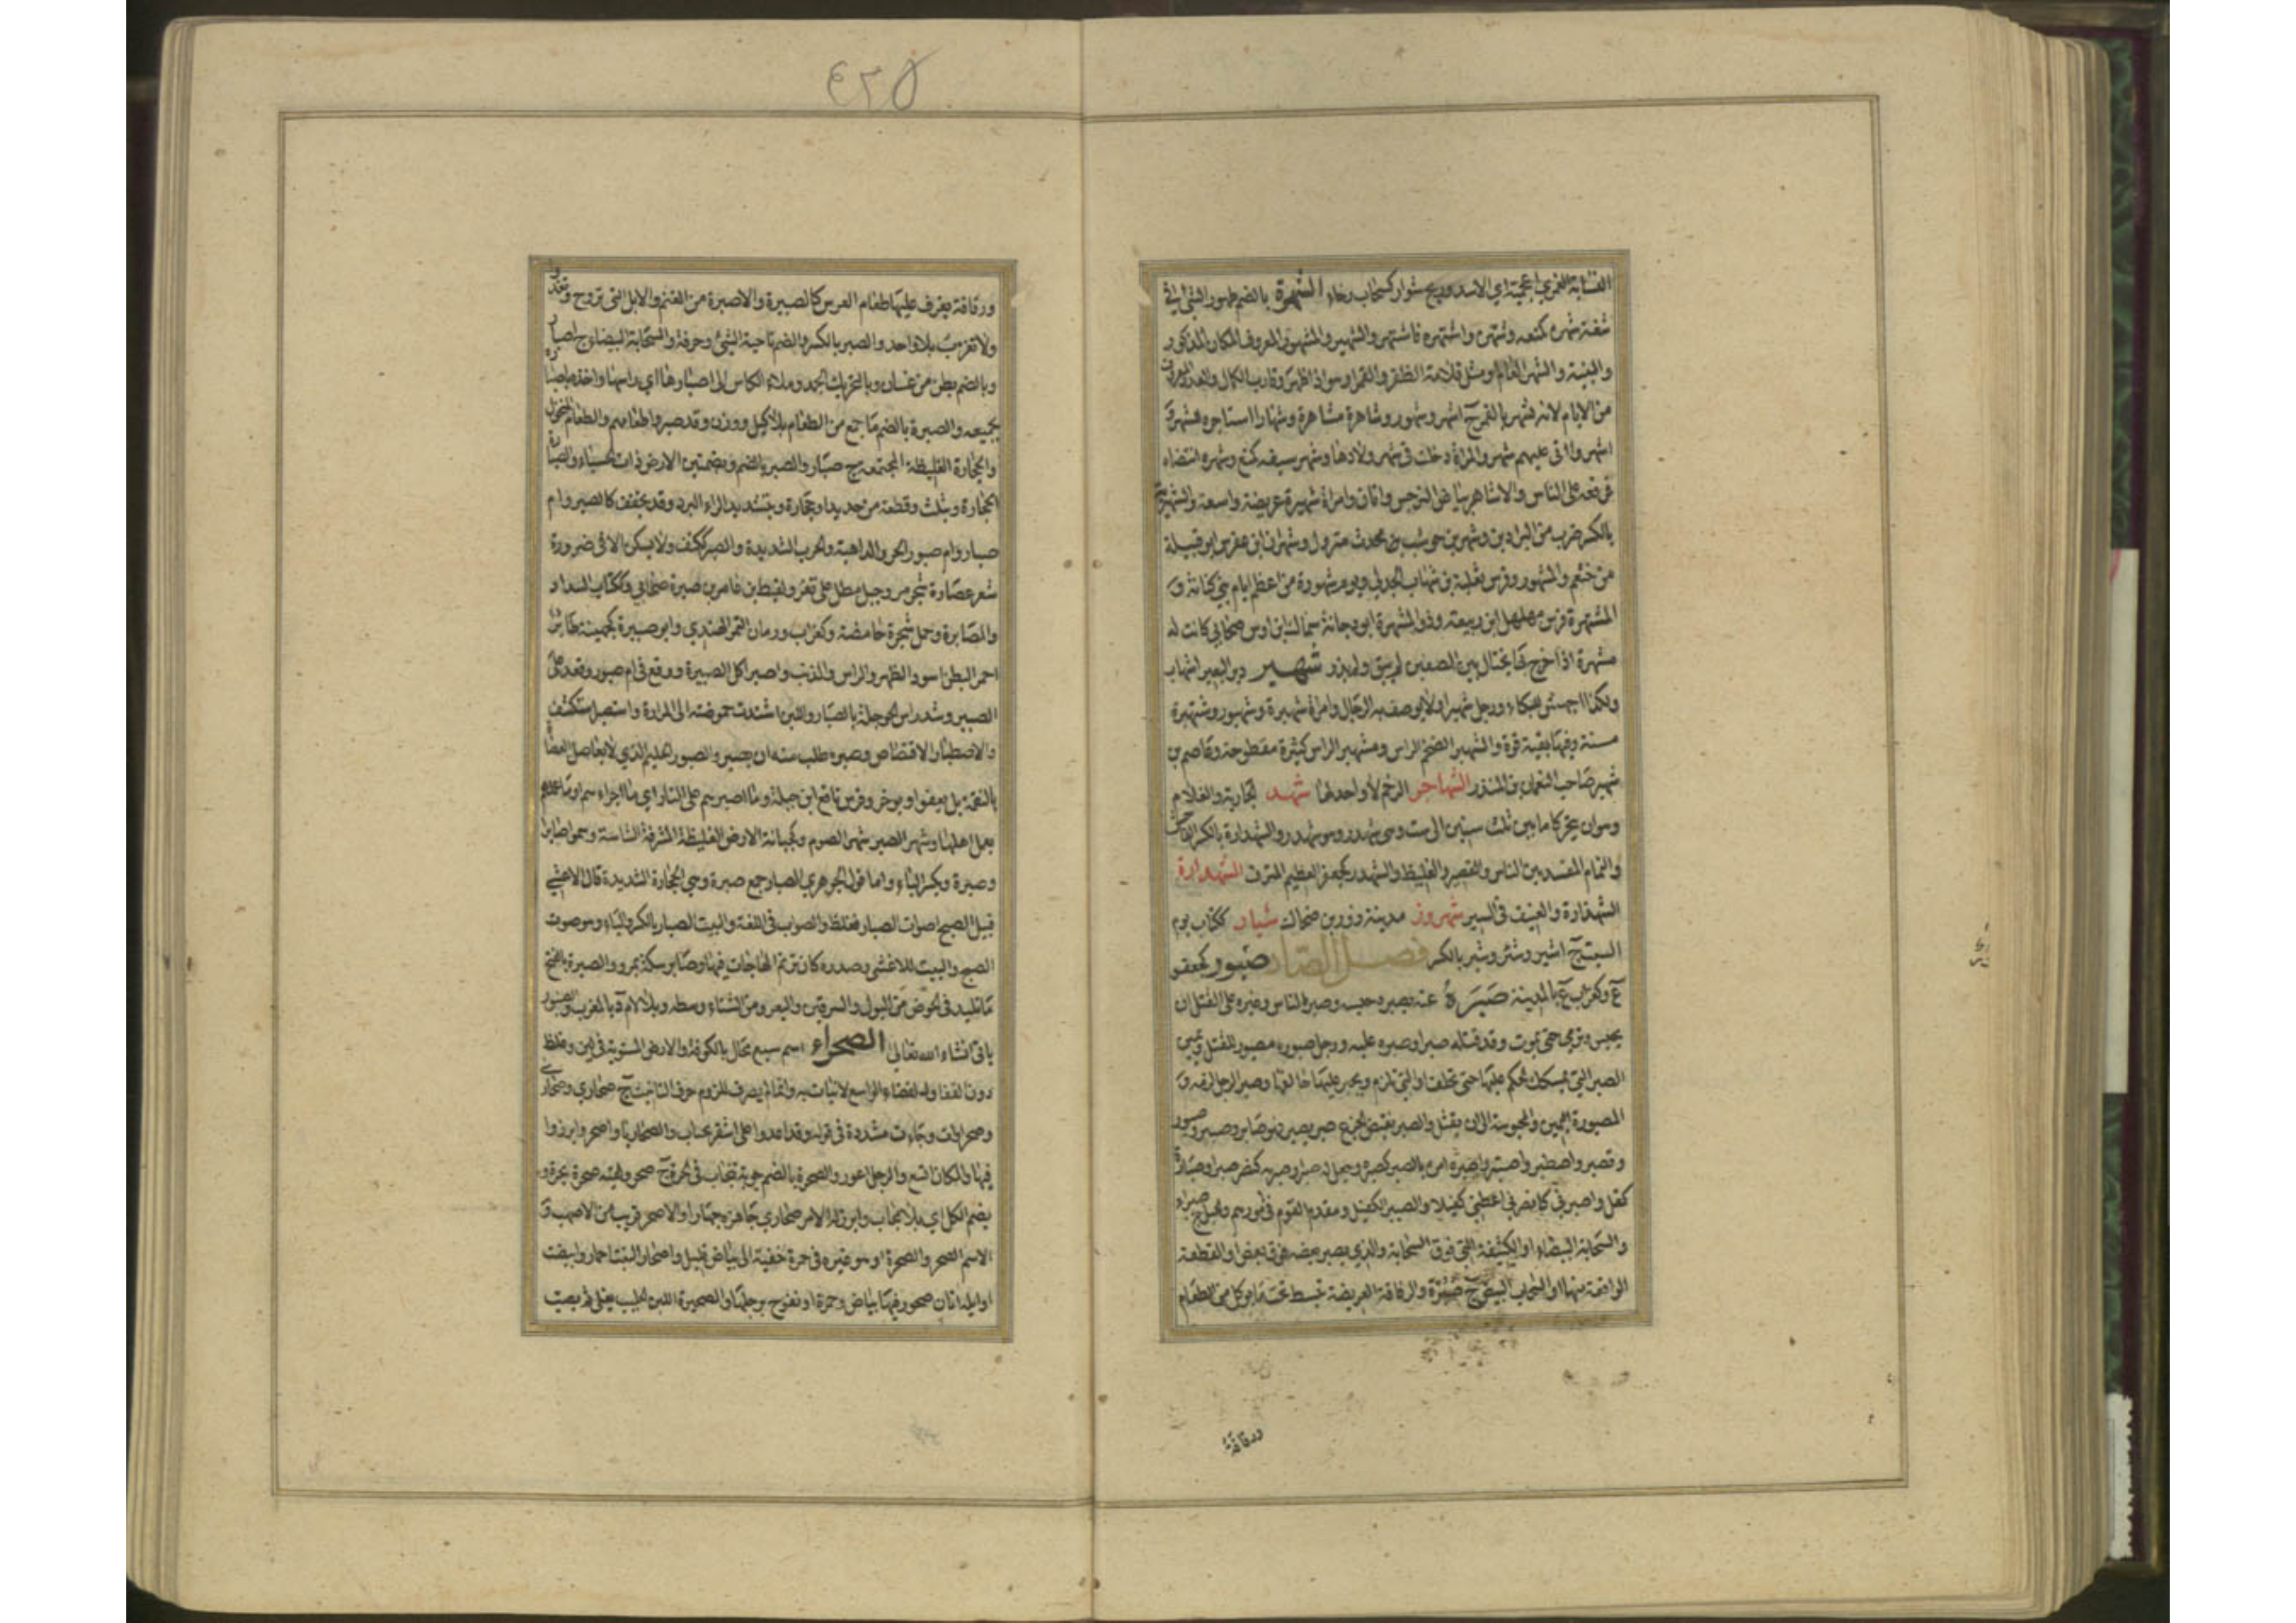 النسابة النمري اعجمية اي الاسد وريح شوار كسحاب رخاء الشهرة بالضم ظهور الشئ في
شنعة شهره كمنعه وشهره واشتهره فاشتهر والشهير والمشهور المعروف المكان المذكور
والنبيه والشهر العالم ومثل قلامة الظفر والقمر او هو اذا ظهر وقارب الكمال والعدد المعروف
من الايام لانه يشهر بالقمر ج اشهر وشهور وشاهره مشاهرة وشهارا استاجره للشهر و
اشهروا اتى عليهم شهر والمراة دخلت في شهر ولادها وشهر سيفه كمنع وشهره انتضاه
فرفعه على الناس والاشاهر بياض النرجس واتان وامراة شهيرة عريضة واسعة والشهرية
بالكسر ضرب من البراذين وشهر بن حوشب محدث متروك وشهران بن عفرس ابو قبيلة
من خثعم والمشهور فرس ثعلبة بن شهاب الجدلي ويوم شهورة من اعظم ايام بني كنانة و
المشتهرة فرس مهلهل ابن ربيعة وذو المشهرة ابو دجانة سماك بن اوس صحابي كانت له
مشهرة اذا خرج بها يختال بين الصفين لم يبق ولم يذر شهبر
ولكذا اجهش للبكاء ورجل شهبر او لا يوصف به الرجال وامراة شهبرة وشهبور وشنهبرة
مسنة وفيها بقية قوة والشهبر الضخم الراس ومشهبر الراس كبيره مفطوحه وعاصم بن
شهبر صاحب النعمان بن المنذر الشهاجر الرخم لا واحد لها شهدر الجارية والغلام
وهو ان يتحركا ما بين ثلث سنين الى ست وهي شهدرة وهو شهدر والشهدارة بالكسر الفاحش
والنمام المفسد بين الناس والقصير والغليظ والشهدر كجعفر العظيم المترف الشهذارة
الشهدارة والعنيف في السير شهروز مدينة زور بن ضحاك شيار ككتاب يوم
السبت ج اشير وشير وشير بالكسر فصل الصاد صئبور كجعفر
ع وكغراب ع بالمدينة صبره عنه يصبره حبسه وصبر الانسان وغيره على القتل ان
يحبس ويرمى حتى يموت وقد قتله صبرا وصبره عليه ورجل صبورة مصبور للقتل ويمين
الصبر التي يمسكك الحكم عليها حتى تحلف او التي تلزم ويجبر عليها حالفها وصبر الرجل لزمه و
المصبورة اليمين والمحبوسة الى ان يقتل والصبر نقيض الجزع صبر يصبر فهو صابر وصبير وصبور
وتصبر واصطبر واصبر واصبره امره بالصبر كصبره وجعل له صبرا وصبر به كنصر صبرا وصبارة
كفل واصبرني كانصرني اعطني كفيلا والصبير الكفيل ومقدم القوم في امورهم والجبل ج صبراء
والسحابة البيضاء او الكثيفة التي فوق السحابة والذي يصير بعضه فوق بعض او القطعة
الواقفة منها او السحاب الابيض ج صبر والرقاقة العريضة تبسط تحت ما يؤكل من الطعام
ورقاقة
٤٢٥
ورقاقة يغرف عليها طعام العرس كالصبيرة والاصبرة من الغنم والابل التي تروح وتغدو
ولا تعزب بلا واحد والصبر بالكسر والضم ناحية الشئ وحرفه والسحابة البيضاء ج اصبار
وبالضم بطن من غسان وبالتحريك الجمد وملاء الكاس الى اصبارها اي راسها واخذه باصباره
بجميعه والصبرة بالضم ما جمع من الطعام بلا كيل ووزن وقد صبروا طعامهم والطعام المنخول
والحجارة الغليظة المجتمعة ج صبار والصبر بالضم وبضمتين الارض ذات الحصباء والصبارة
الحجارة ويثلث وقطعة من حديد او حجارة وبتشديد الراء البرد وقد يخفف كالصبرة وام
صبار وام صبور الحر والداهية والحرب الشديدة والصبر ككتف ولا يسكن الا في ضرورة
شعر عصارة شجر مر وجبل مطل على تعز ولقيط بن عامر بن صبرة صحابي وككتاب السداد
والمصابرة وحمل شجرة حامضة وكغراب ورمان التمر الهندي وابو صبيرة كجهينة طائر
احمر البطن اسود الظهر والراس والذنب واصبر اكل الصبيرة ووقع في ام صبور وقعد على
الصبير وشد راس الحوجلة بالصبار واللبن اشتدت حموضته الى المرارة واستصبر استكثف
والاصطبار الاقتصاص وصبره طلب منه ان يصبر والصبور الحليم الذي لا يعاجل العصاة
بالنقمة بل يعفو او يؤخر وفرس نافع ابن جبلة وما اصبرهم على النار اي ما اجراهم او ما اعملهم
بعمل اهلها وشهر الصبر شهر الصوم وكجبانة الارض الغليظة المشرفة الشاسة وسموا صابرا
وصبرة وبكسر الباء واما قول الجوهري الصبار جمع صبرة وهي الحجارة الشديدة قال الاعشى
قبيل الصبح اصوات الصبار فغلط والصواب في اللغة والبيت الصيار بالكسر والياء وهو صوت
الصنج والبيت للاعشى وصدره كان ترنم الهاجات فيها وصابر سكة بمرو والصبرة بالفتح
ما تلبد في الحوض من البول والسرقين والبعر ومن الشتاء وسطه وبلا لام د بالمغرب والصنبور
ياتي انشاء الله تعالى الصحراء اسم سبع محال بالكوفة والارض المستوية في لين وغلظ
دون القف او الفضاء الواسع لا نبات به وانما لم يصرف للزوم حرف التانيث ج صحاري وصحاري
وصحراوات وجاءت مشددة في قوله وقد اغدوا على اشقر يجتاب الصحاريا واصحروا برزوا
فيها والمكان اتسع والرجل اعور والصحرة بالضم جوبة تنجاب في الحرة ج صحر ولقيته صحرة بحرة و
بضم الكل اي بلا حجاب وابرز له الامر صحارا جاهره جهارا والاصحر قريب من الاصهب و
الاسم الصحر والصحرة او هو غبرة في حمرة خفية الى بياض قليل واصحار النبت احمار وابيضت
اوايله اتان صحور فيها بياض وحمرة او نفوح برجلها والصحيرة اللبن الحليب يغلى ثم يصب